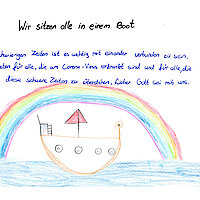 Wir sitzen alle in einem Boot
Zeiten ist es wichtig mit einander verbunden zu sein.
für alle, die am Corona-Virus erkrankt sind und für alle, die
diese schwere Zeiten zu überstehen. Lieber Gott sei mit uns.